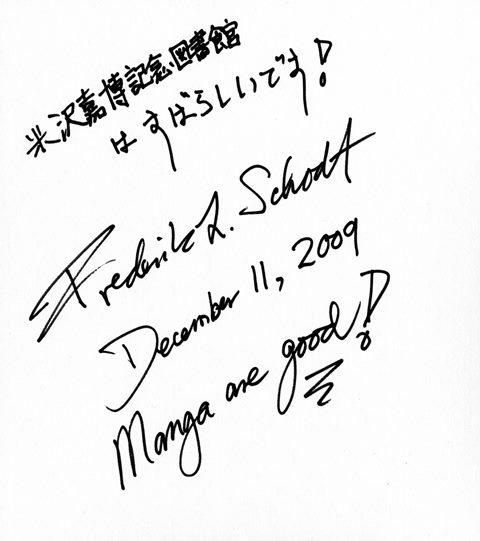 米沢嘉博記念図書館
はすばらしいです!
Frederik L. Schodt
December 11, 2009
Manga are good!